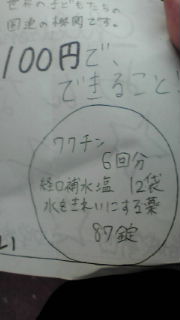 世界の子どもたちの
国連の機関です。
100円で、
できること!
ワクチン
6回分
経口補水塩 12袋
水をきれいにする薬
87錠